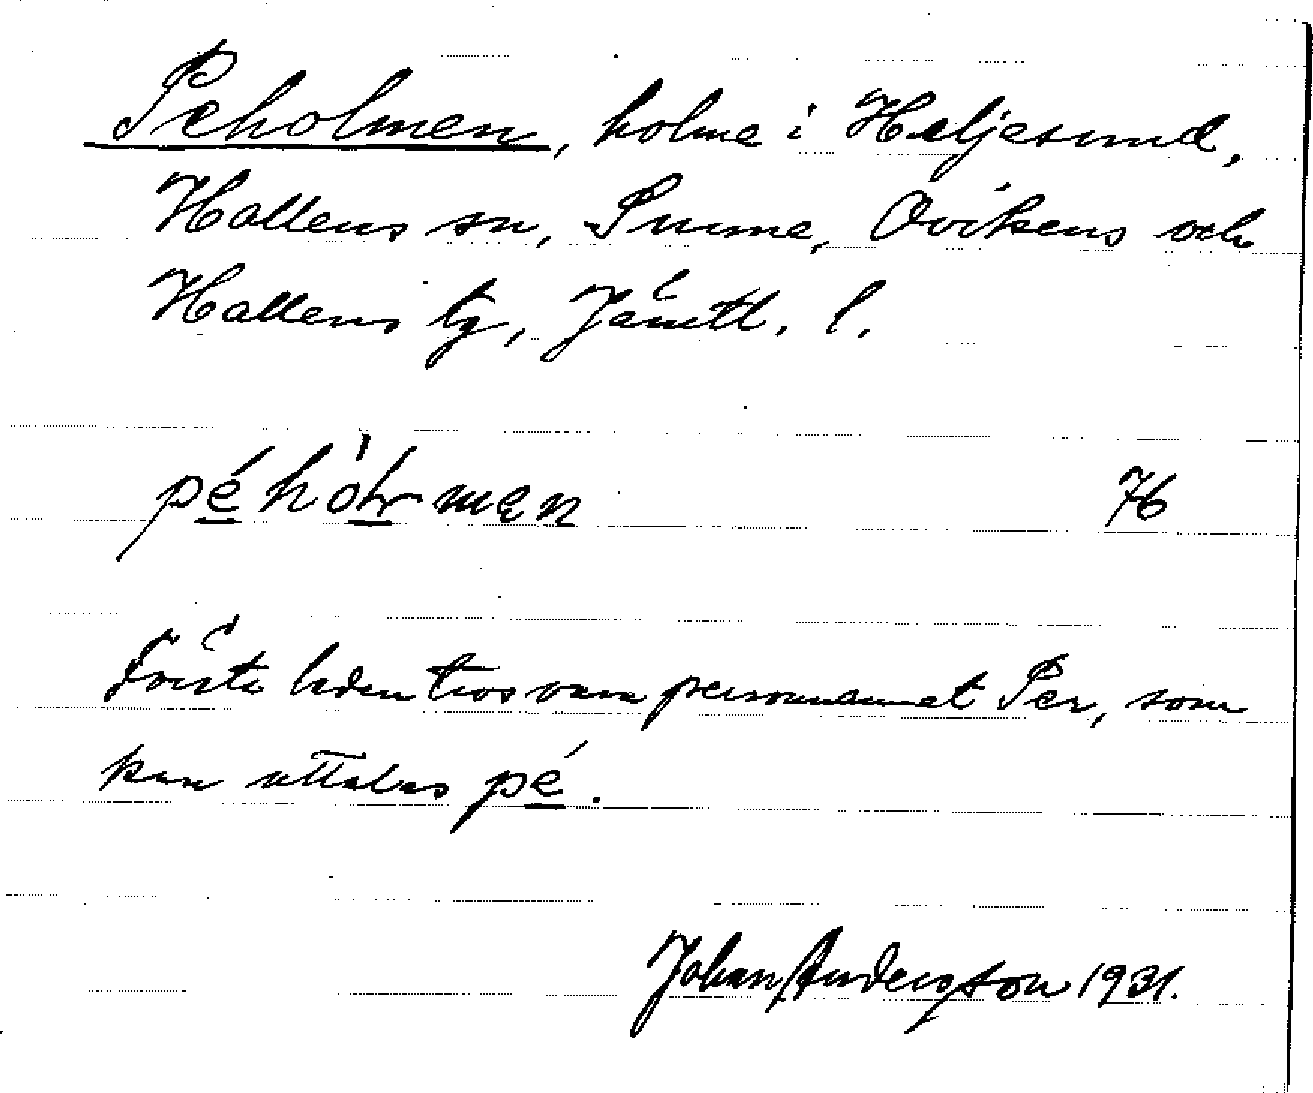 Peholmen, holme i Heljesund,
Hallens sn, Sunne, Ovikens och
Hallens tg, Jämtl. l.
péhòlmen 76
Första leden tros vara personnamnet Per, som
kan uttalas pé.
Johan Anderson 1931.